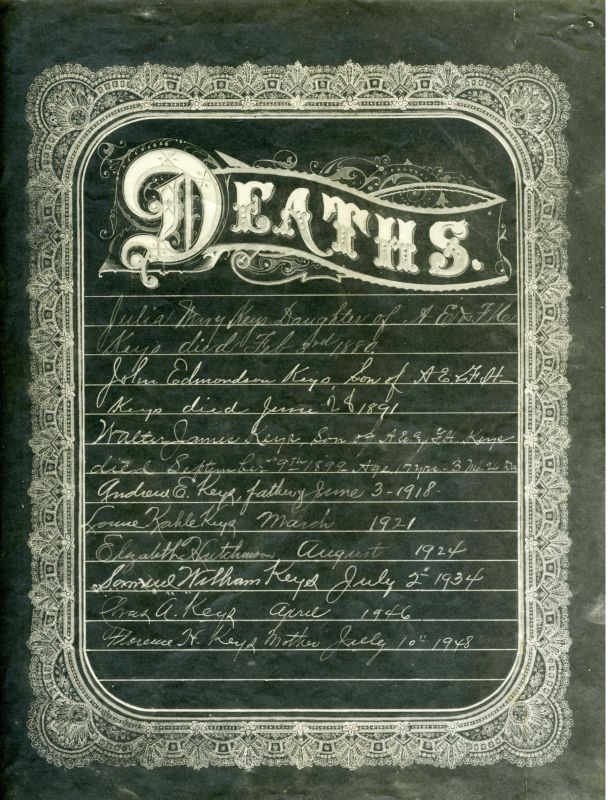 DEATHS.
Julia Mary Keys Daughter of A E & F H
Keys died Feb 3rd 1880
John Edmondson Keys Son of A E & F H
Keys died June 28 1891
Walter James Keys Son of A E & F H Keys
died September 9th 1899 Age 17 yrs - 3 Mo.
Andrew E. Keys, father June 3-1918-
Louise Kahle Keys March 1921
Elizabeth Hutchinson August 1924
Samuel William Keys July 2" 1934
A. Keys April 1946
Florence H. Keys Mother July 10" 1948